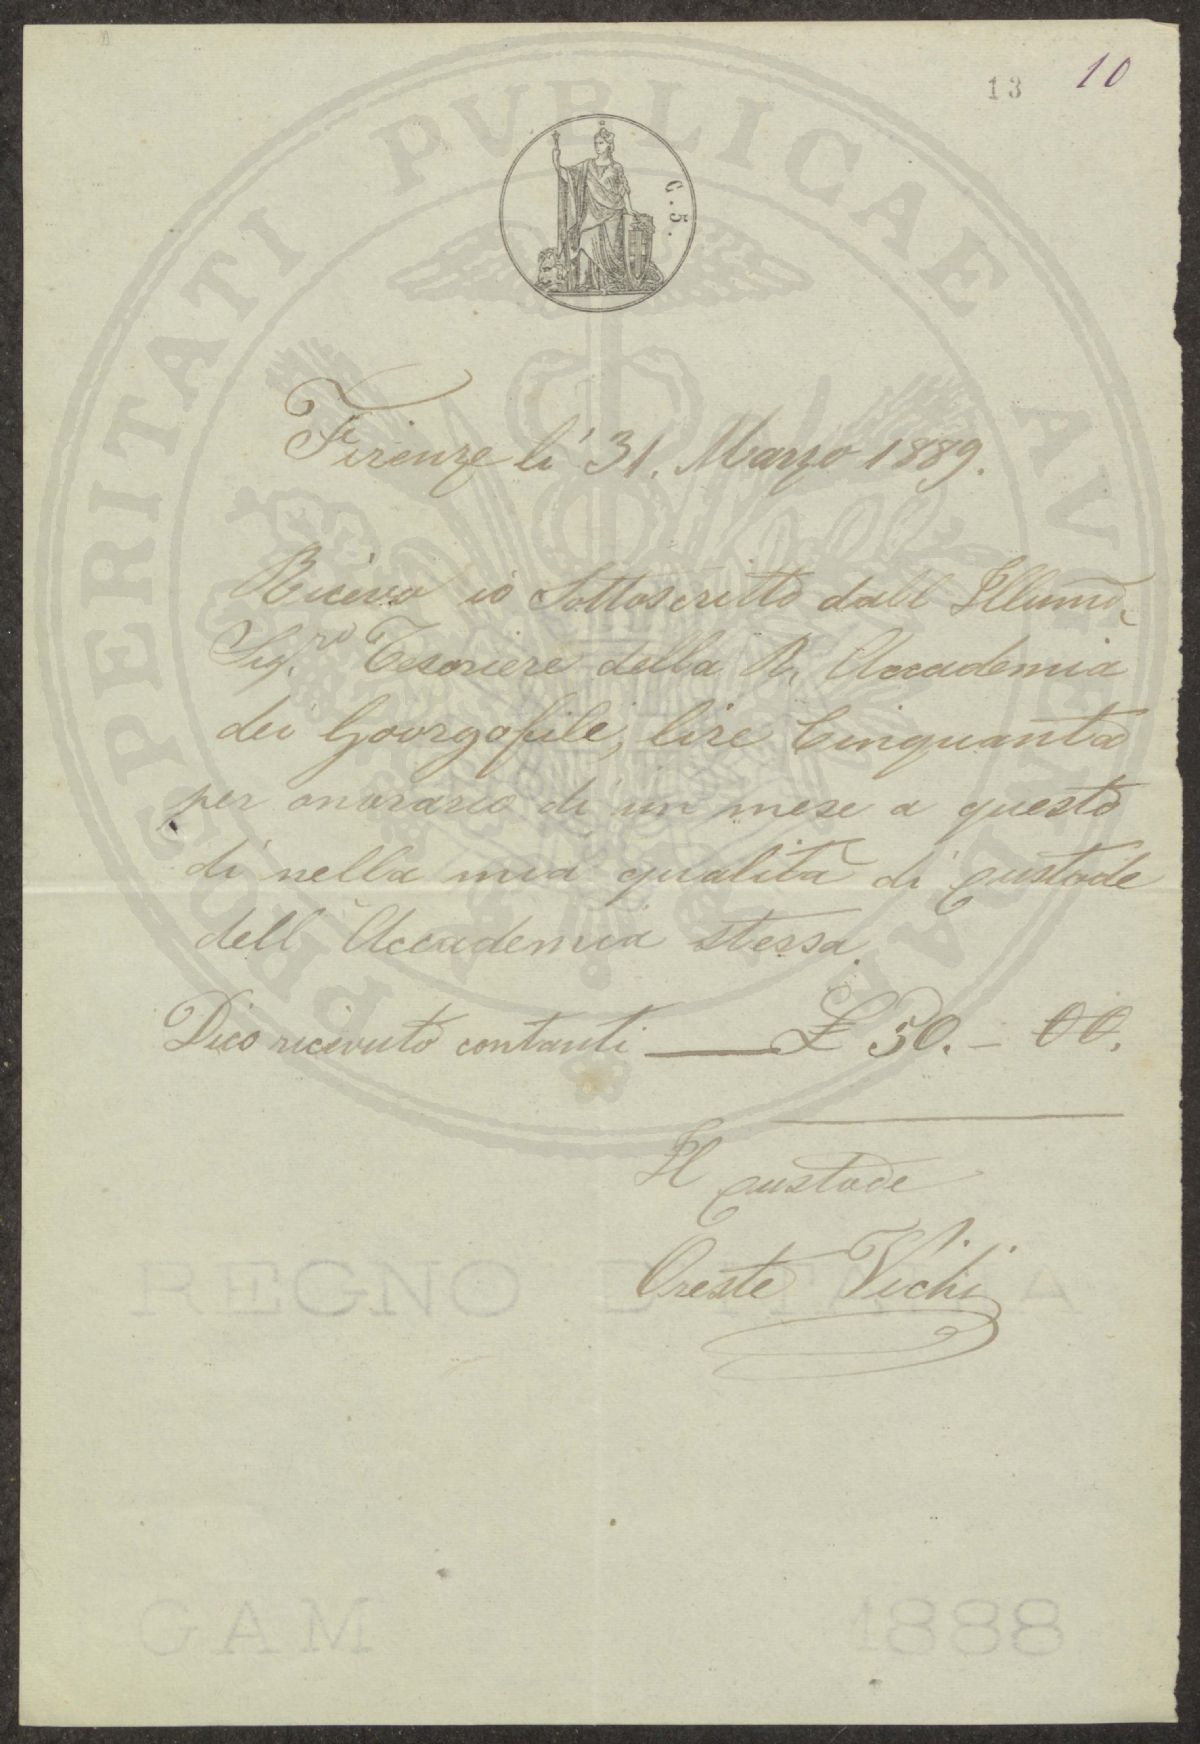 13 10
C. 5.
Firenze lì 31. Marzo 1889.
Ricevo io Sottoscritto dall Illumo.
Sig.re Tesoriere della R. Accademia
dei Goorgofile, lire Cinquanta
per onorario di un mese a questo
dì nella mia qualità di custode
dell'Accademia stessa
Dico ricevuto contanti — £ 50. - 00.
Il custode
Oreste Vichi
PROSPERITATI PVBLICAE AVGENDAE
REGNO D'ITALIA
GAM 1888